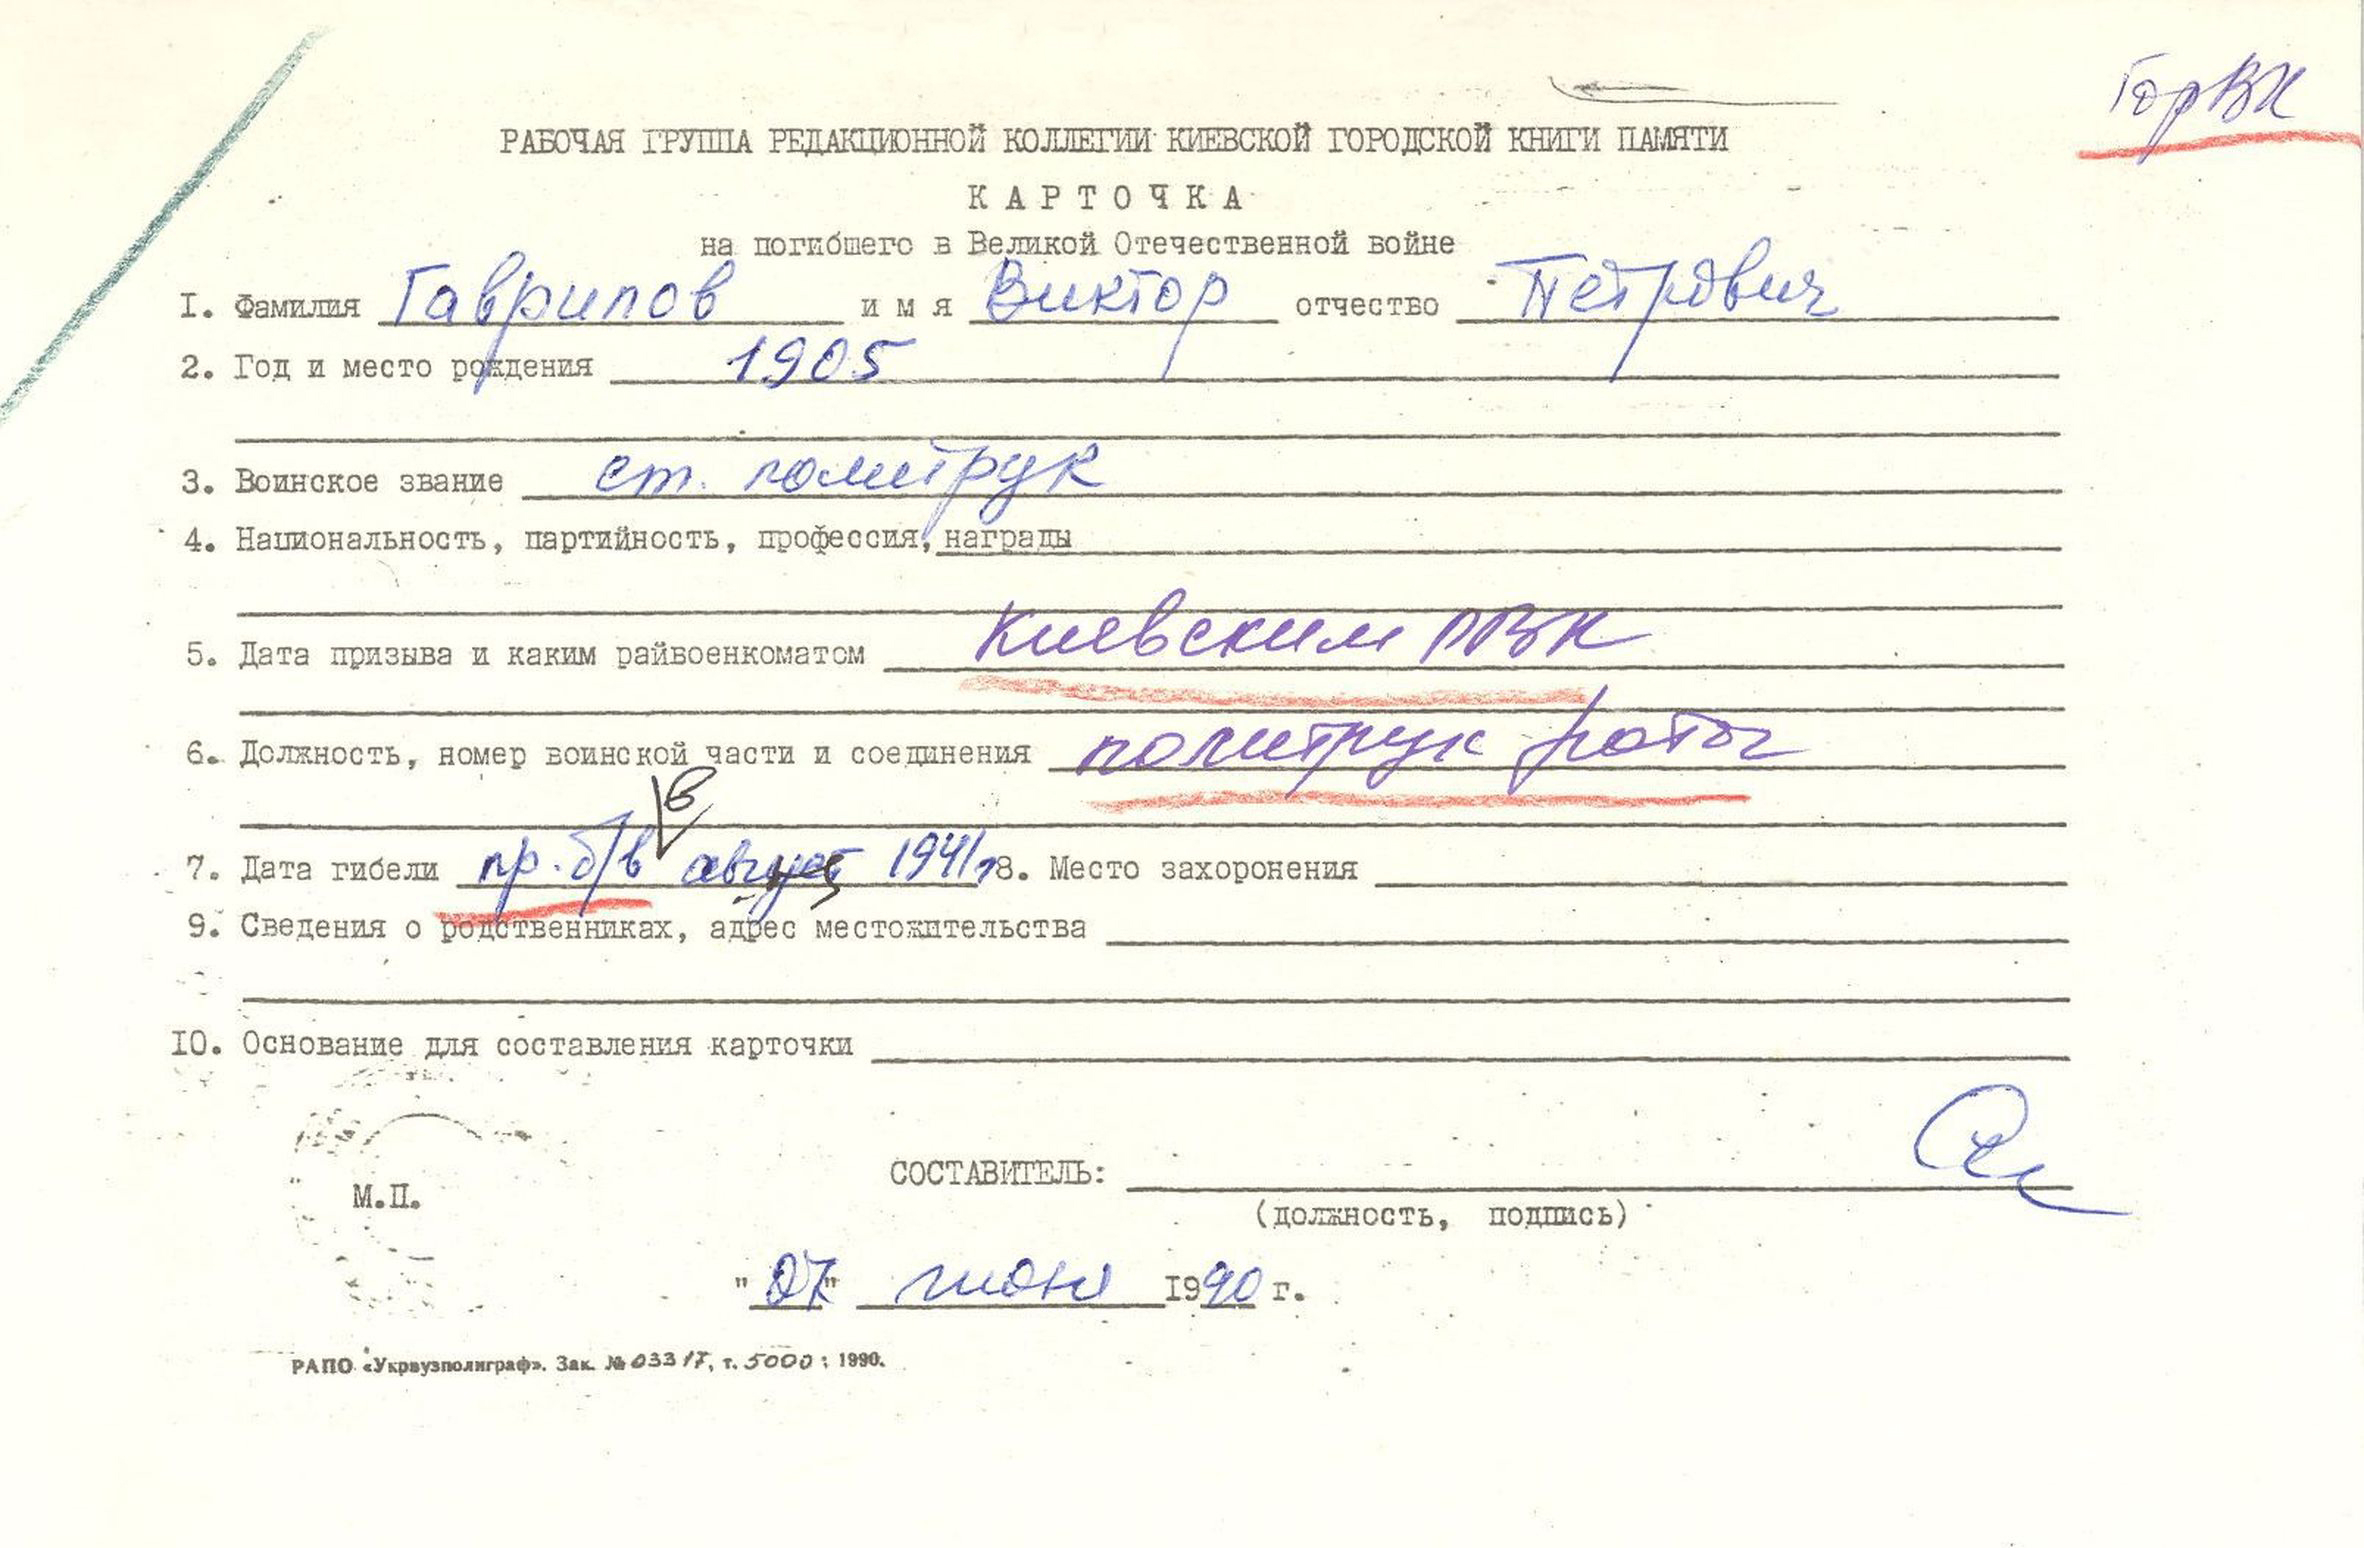 ГорВК
РАБОЧАЯ ГРУППА РЕДАКЦИОННОЙ КОЛЛЕГИИ КИЕВСКОЙ ГОРОДСКОЙ КНИГИ ПАМЯТИ
КАРТОЧКА
на погибшего в Великой Отечественной войне
1. Фамилия Гаврилов имя Виктор отчество Петрович
2. Год и место рождения 1905
3. Воинское звание ст. политрук
4. Национальность, партийность, профессия, награды
5. Дата призыва и каким райвоенкоматом Киевским РВК
6. Должность, номер воинской части и соединения политрук роты
в
7. Дата гибели пр. б/в август 1941 8. Место захоронения
9. Сведения о родственниках, адрес местожительства
10. Основание для составления карточки
СОСТАВИТЕЛЬ:
М.П.
(должность, подпись)
"27" июня 1990 г.
РАПО «Укрвузполиграф». Зак. № 03317, т. 5000; 1990.